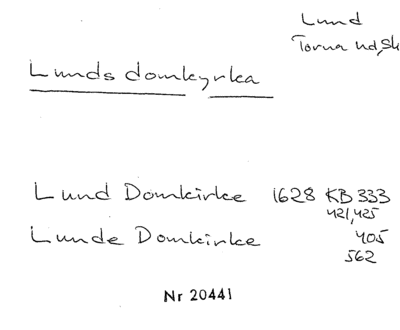 Lund
Torna hd, Sk
Lunds domkyrka
Lund Domkirke 1628 KB 333
421, 425
Lunde Domkirke 405
562
Nr 20441